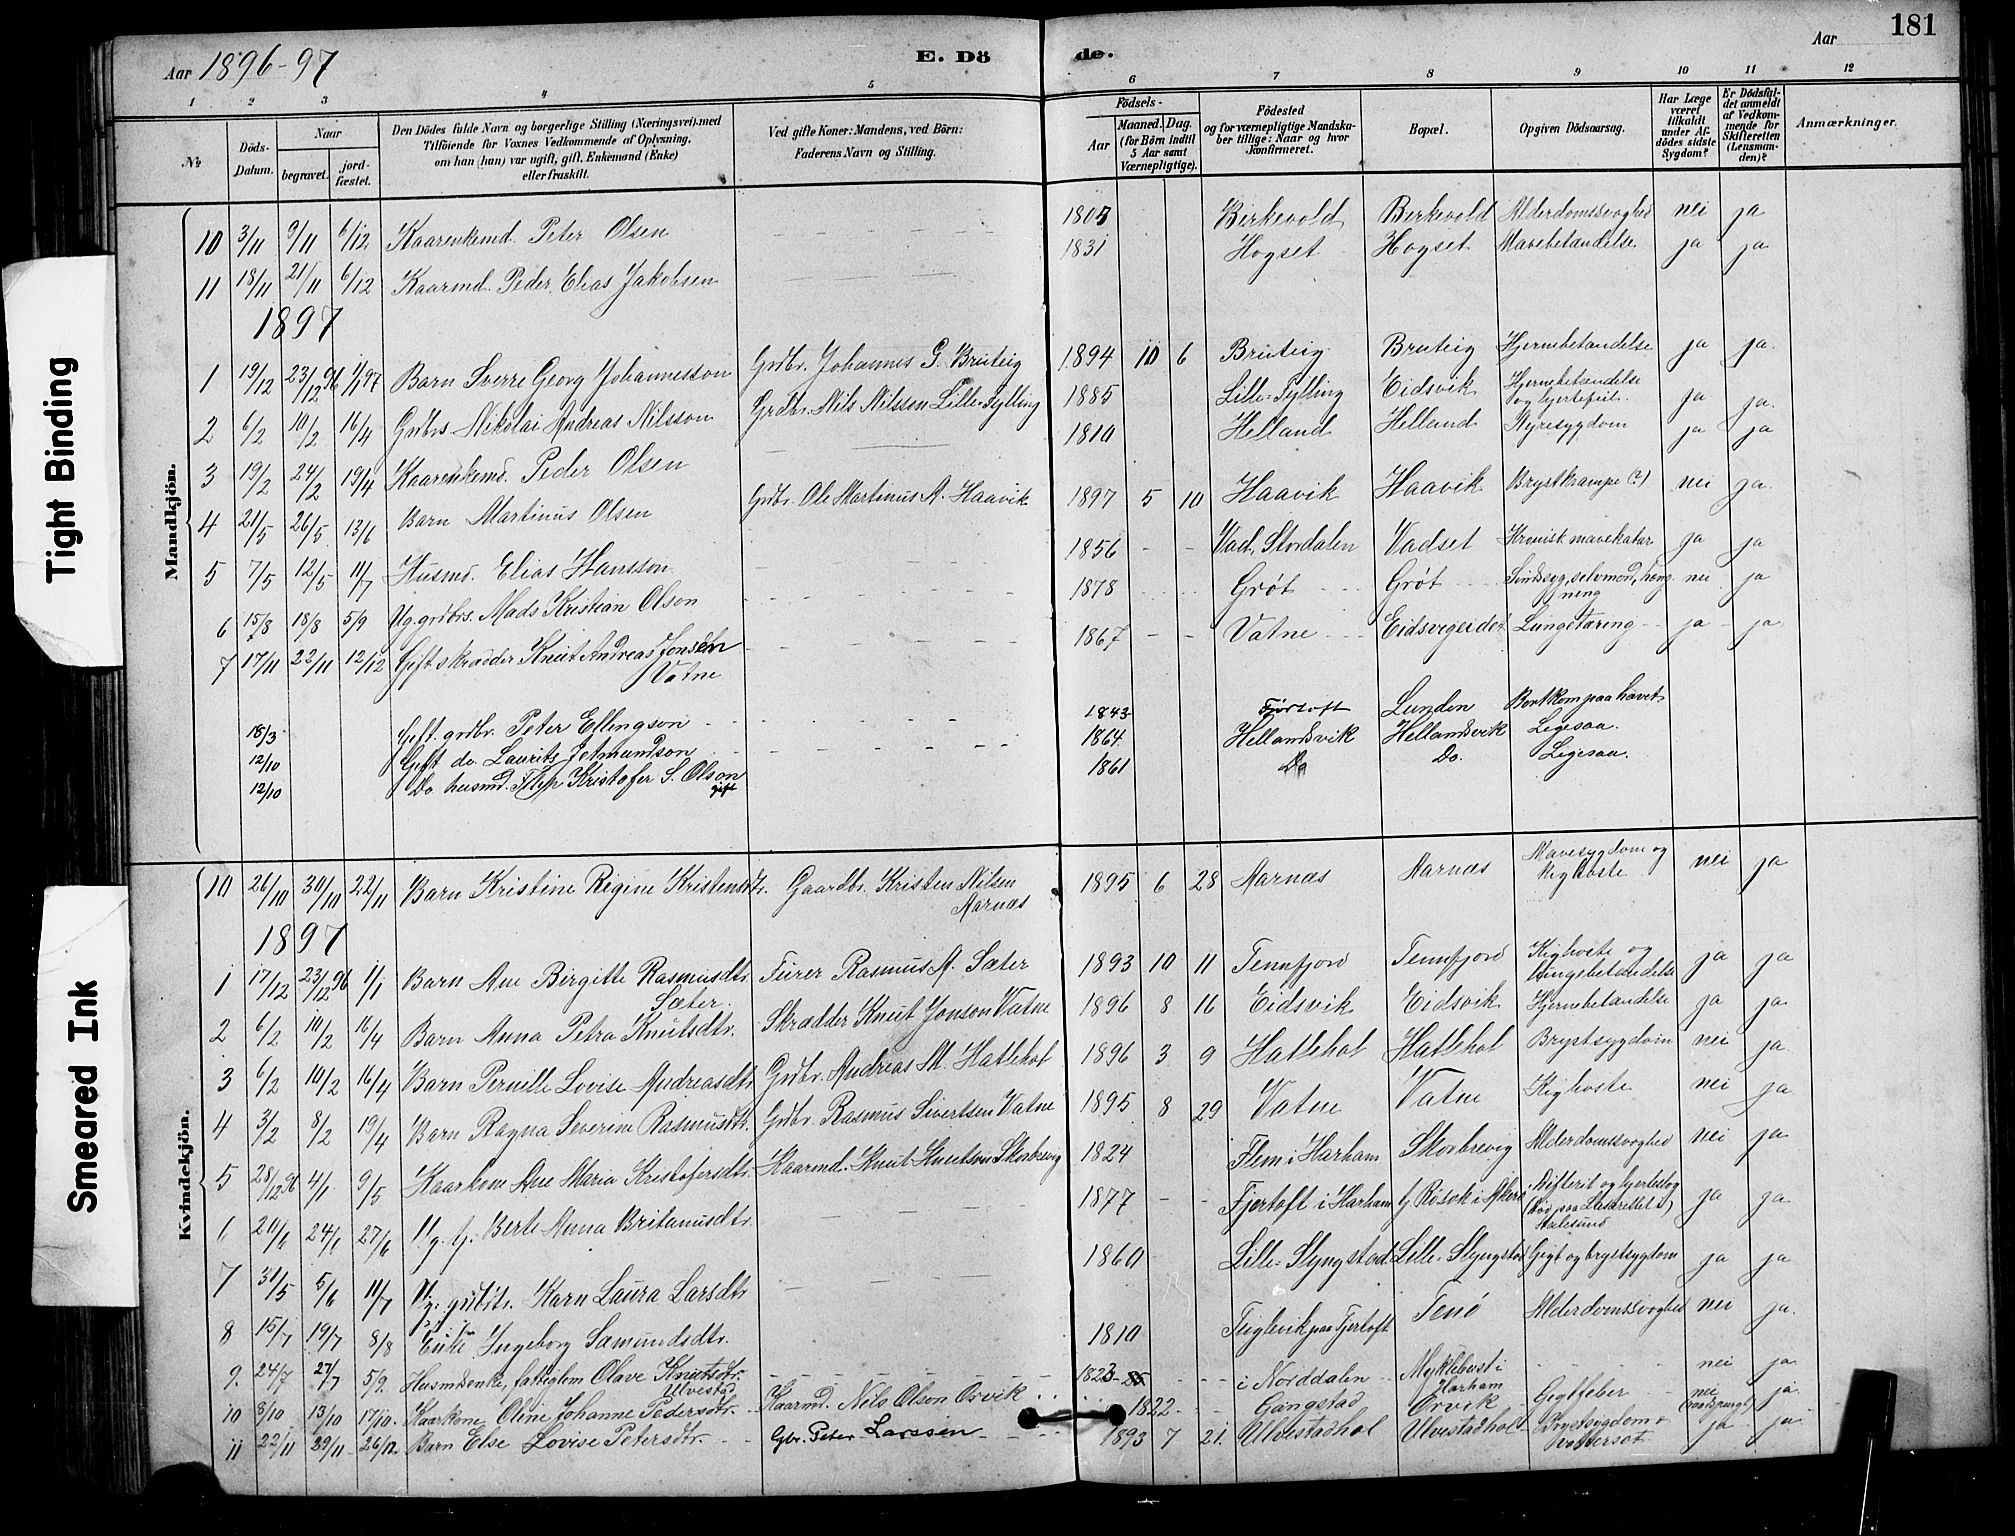 181
Aar 1896-97 E. Dö de. Aar
1 2 3 4 5 6 7 8 9 10 11 12
No
Döds-Datum.
Naar
begravet. jordfæstet.
Den Dödes fulde Navn og borgerlige Stilling (Næringsvei), med
Tilföiende for Voxnes Vedkommende af Oplysning,
om han (hun) var ugift, gift, Enkemand (Enke)
eller fraskilt.
Ved gifte Koner: Mandens, ved Börn:
Faderens Navn og Stilling.
Födsels-
Aar
Maaned. Dag.
(for Börn indtil
5 Aar samt
Værnepligtige).
Födested
og for værnepligtige Mandskaber tillige: Naar og hvor
Konfirmeret.
Bopæl.
Opgiven Dödsaarsag.
Har Læge
været
tilkaldt
under Afdödes sidste
Sygdom?
Er Dödsfaldet anmeldt
af Vedkommende for
Skifteretten
(Lensmanden)?
Anmærkninger.
Tight Binding
Smeared Ink
Mandkjön.
10 3/11 9/11 6/12 Kaarenkemd. Peter Olsen 1805 Birkevold Birkevold Alderdomssvaghed nei ja
11 18/11 21/11 6/12 Kaarmd. Peder Elias Jakobsen 1831 Hogset Hogset Mavebetændelse ja ja
1897
1 19/12 23/12 96 1/1 97 Barn Sverre Georg Johannesson Grdbr. Johannes G. Bruteig 1894 10 6 Bruteig Bruteig Hjernebetændelse ja ja.
2 6/2 10/2 16/4 Grdbrs. Nikolai Andreas Nilsson Grdbr. Nils Nilssen Lille-Fylling 1885 Lille-Fylling Eidsvik Hjernebetændelse
og hjertefeil. ja ja.
3 19/2 24/2 19/4 Kaarenkemd. Peder Olsen 1810 Helland Helland Nyresygdom ja ja
4 21/5 26/5 13/6 Barn Martinus Olsen Grdbr. Ole Martinus A. Haavik 1897 5 10 Haavik Haavik Brystkrampe (?) nei ja.
5 7/5 12/5 11/7 Husmd. Elias Hansson 1856 - - Vad, Stordalen Vadset Kronisk mavekatar ja ja
6 15/8 18/8 5/9 Ug. grdbrs. Mads Kristian Olson 1878 Grøt Grøt Sindssyg, selvmord, hæng-
ning nei ja
7 17/11 22/11 12/12 Gift skrædder Knut Andreas Jonsen
Vatne 1867 - - Vatne Eidsvigeidet Lungetæring ja ja
18/3 Gift grdbr. Peter Ellingson 1843 Fjørtoft Lunden Bortkom paa havet
12/10 Gift do. Laurits Jetmundson 1864 Hellandsvik Hellandsvik Ligesaa.
12/10 Do husmd. Filip Kristofer S. Olson
gift 1861 Do Do. Ligesaa.
Kvindekjön.
10 26/10 30/10 22/11 Barn Kristine Regine Kristensdtr. Gaardbr. Kristen Nilsen
Aarnæs 1895 6 28 Aarnæs Aarnæs Mavesygdom og
Kighoste nei ja
1897
1 17/12 23/12 96 1/1 Barn Ane Birgitte Rasmusdtr.
Sæter. Rasmus A. Sæter 1893 10 11 Tennfjord Tennfjord Kighoste og
lungebetændelse ja ja
2 6/2 10/2 16/4 Barn Anna Petra Knutsdtr. Skrædder Knut Jonson Vatne 1896 8 16 Eidsvik Eidsvik Hjernebetændelse ja ja
3 6/2 10/2 16/4 Barn Pernille Lovise Andreasdtr. Grdbr. Andreas M. Hatlehol 1896 3 9 Hatlehol Hatlehol Brystsygdom nei ja
4 3/2 8/2 19/4 Barn Ragna Severine Rasmusdtr. Grdbr. Rasmus Sivertsen Vatne 1895 8 29 Vatne Vatne Kighoste nei ja
5 28/12 96 4/1 9/5 Kaarkone Ane Maria Kristofersdtr. Kaarmd. Knut Knutson Skorbrevig 1824 Flem i Harham Skorbrevig Alderdomssvaghed nei ja
6 20/1 24/1 27/6 Ug. Berte Anna Britanusdtr. 1877 - - Fjertoft i Harham Difterit og hjerteslag
(Død paa Lasarettet i)
Aalesund ja ja.
7 31/5 5/6 11/7 Ug. Karn Laura Larsdtr 1860 Lille-Slyngstad Lille-Slyngstad Gigt og brystsygdom ja ja
8 15/7 19/7 8/8 Enke Ingeborg Samundsdtr. 1810 Teiglevik paa Fjertoft Tenø Alderdomssvaghed nei ja.
9. 24/7 27/7 5/9. Husmdsenke, fattiglem Olave Knutsdtr.
Ulvestad 1823 i Norddalen Myklebust i
Harham nei ja
10 8/10 13/10 17/10. Kaarkone Oline Johanne Pedersdtr. Kaarmd. Nils Olson Orvik 1822 - Gangstad Orvik Gigtfeber nei ja
11 22/11 29/11 26/12 Barn Else Lovise Petersdtr. Gbr. Peter Larssen 1893 7 21. Ulvestadhol Ulvestadhol Brystsygdom +
vattersot ja ja